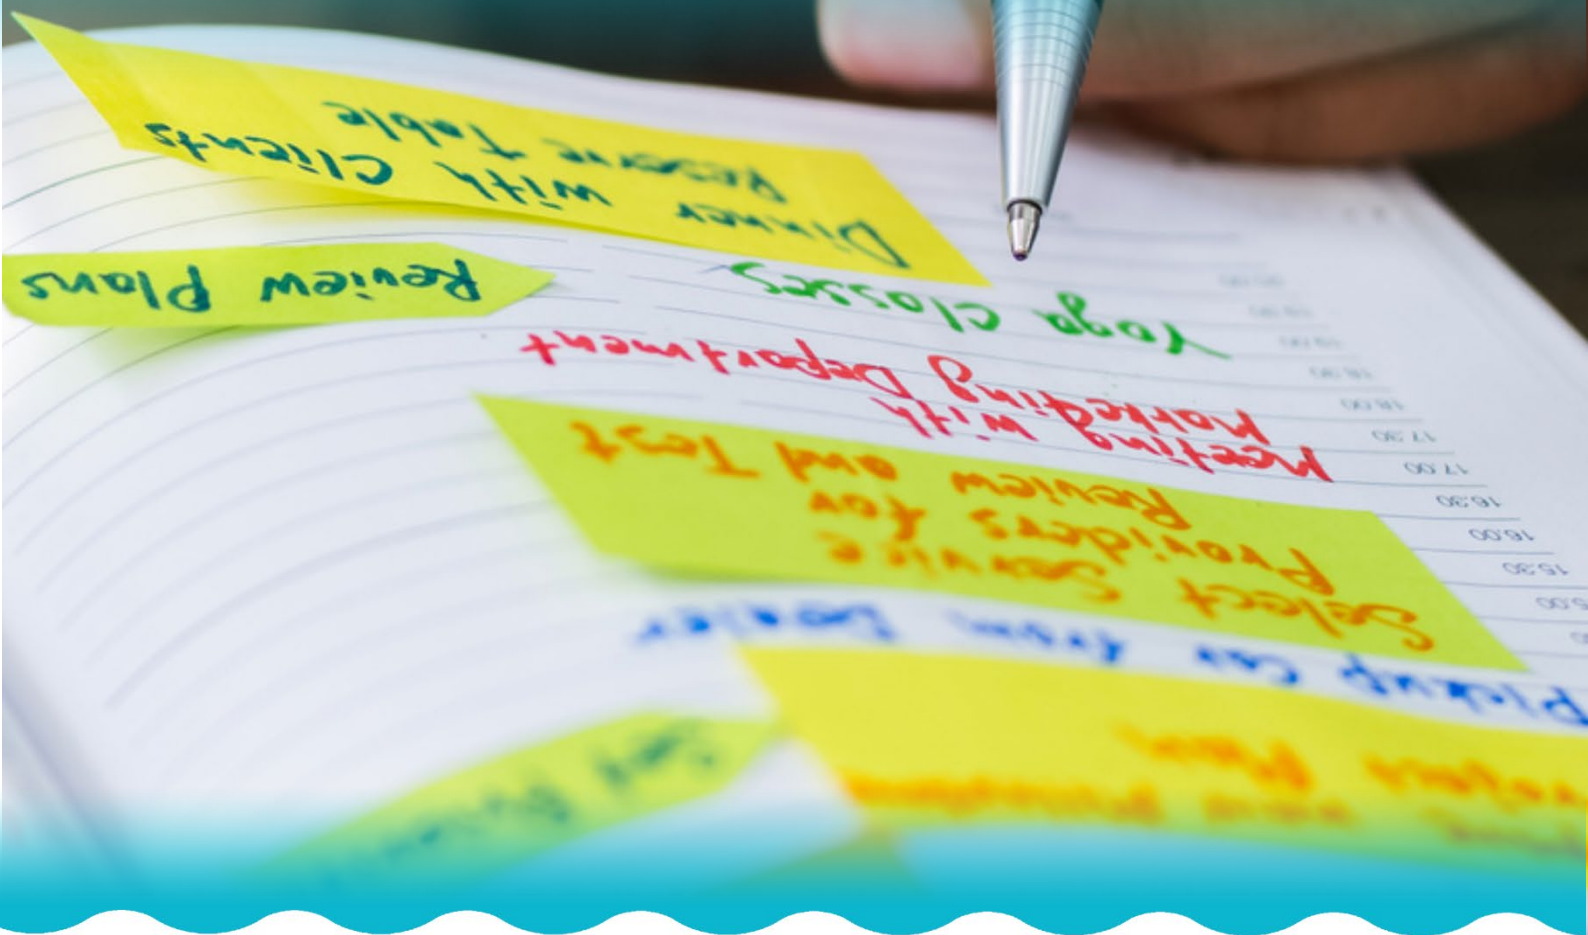 Pickup Car from
Select Service
Providers for
Review and Test
15.30
16.00
16.30
17.00
17.30
18.00
18.30
19.00
Meeting with
Marketing Department
Yoga Classes
Review Plans
Dinner with Clients
Reserve Table